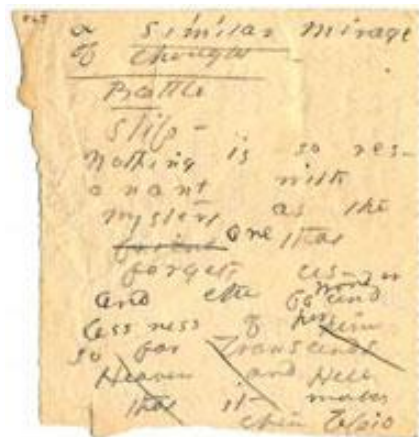 a similar mirage
of thought
Prattle
Slip -
Nothing is so res-
onant with
mystery as the
friend one that
forgets us -
and the
lessness of her
so far Transcends
Heaven and Hell
that it makes
them